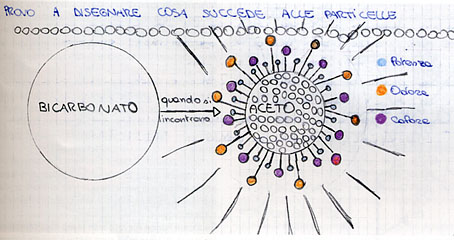 PROVO A DISEGNARE COSA SUCCEDE ALLE PARTICELLE
BICARBONATO
quando si
incontrano
ACETO
Potenza
Odore
Calore